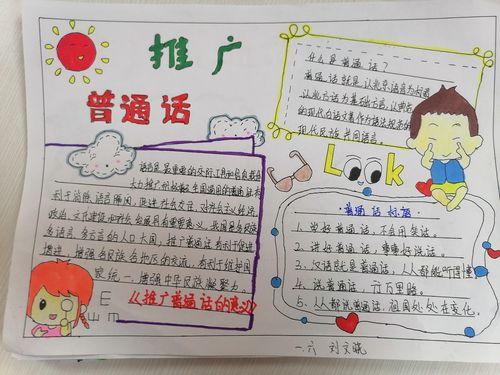 推广
普通话
什么是普通话？
普通话就是以北京语音为标准
以北方话为基础方言，以典范
的现代白话文著作为语法规范的
现代汉民族共同语言。
语言是最重要的交际工具和信息载体
大力推广和
全国通用的普通话有
利于消除语言隔阂，促进社会交往，对社会主义经济
政治、文化建设和社会发展具有重要意义。我国是多民族
多语言、多方言的人口大国，推广普通话有利于促进
增进
各民族各地区的交流，有利于维护国
家统一，增强中华民族凝聚力。
《推广普通话的意义》
Look
普通话标语
1、学好普通话，
2、讲好普通话，
好说话。
3、汉语就是普通话，人人都能听得懂
4、说普通话，行万里路。
5、人人都说普通话，祖国处处在变化。
E
山 m
一.六 刘文晓